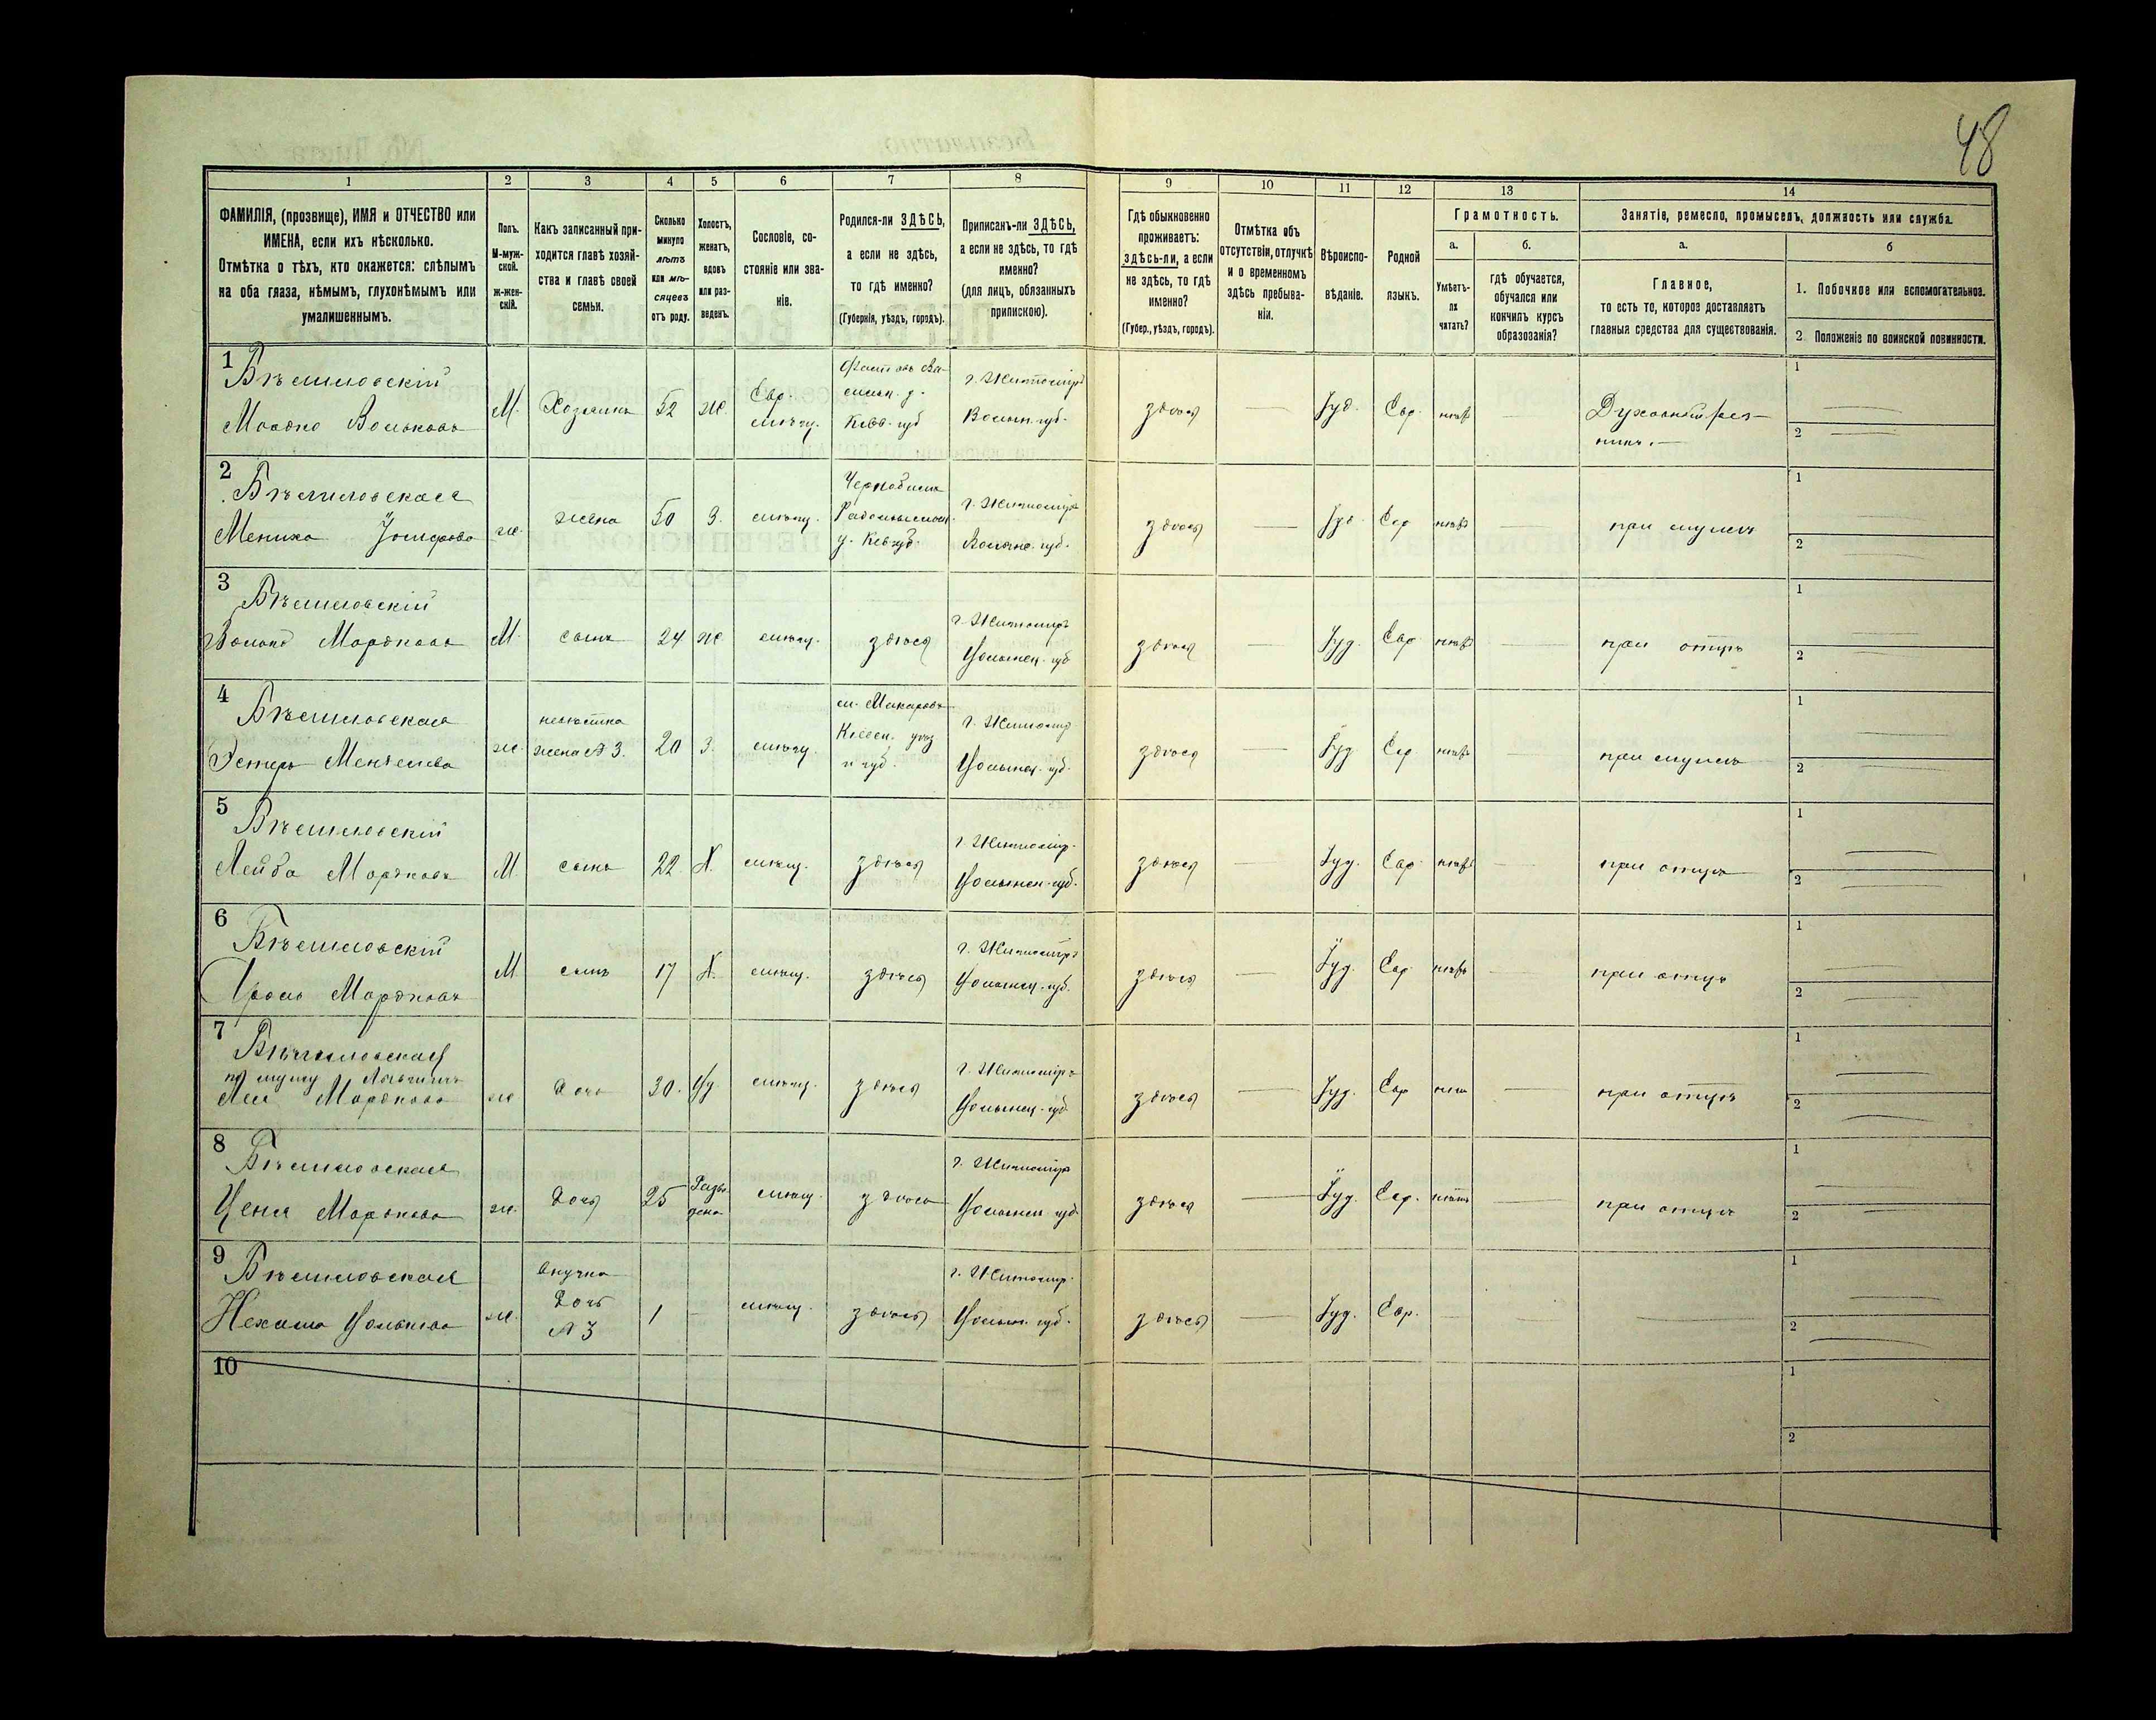 48
1 2 3 4 5 6 7 8 9 10 11 12 13 14
ФАМИЛІЯ, (прозвище), ИМЯ и ОТЧЕСТВО или
ИМЕНА, если ихъ нѣсколько.
Отмѣтка о тѣхъ, кто окажется: слѣпымъ
на оба глаза, нѣмымъ, глухонѣмымъ или
умалишеннымъ.
Полъ.
М-муж-
ской.
Ж-жен-
скій.
Какъ записанный при-
ходится главѣ хозяй-
ства и главѣ своей
семьи.
Сколько
минуло
лѣтъ
или мѣ-
сяцевъ
отъ роду.
Холостъ,
женатъ,
вдовъ
или раз-
веденъ.
Сословіе, со-
стояніе или зва-
ніе.
Родился-ли ЗДѢСЬ,
а если не здѣсь,
то гдѣ именно?
(Губернія, уѣздъ, городъ).
Приписанъ-ли ЗДѢСЬ,
а если не здѣсь, то гдѣ
именно?
(для лицъ, обязанныхъ
припискою).
Гдѣ обыкновенно
проживаетъ:
здѣсь-ли, а если
не здѣсь, то гдѣ
именно?
(Губер., уѣздъ, городъ).
Отмѣтка объ
отсутствіи, отлучкѣ
и о временномъ
здѣсь пребыва-
ніи.
Вѣроиспо-
вѣданіе.
Родной
языкъ.
Грамотность.
а.
Умѣетъ-
ли
читать?
б.
гдѣ обучается,
обучался или
кончилъ курсъ
образованія?
Занятіе, ремесло, промыселъ, должность или служба.
а.
Главное,
то есть то, которое доставляетъ
главныя средства для существованія.
б
1. Побочное или вспомогательное.
2. Положеніе по воинской повинности.
1
Бѣлиловскій
Мордко Вольковъ
М.
Хозяинъ
52
ж.
Евр.
мѣщ.
Фастовъ Ва-
сильк. у.
Кіев. губ
г. Житоміръ
Волын. губ.
здѣсь
Іуд.
Евр.
Духовный рез-
никъ.
1
2
2
Бѣлиловская
Мениха
ж.
жена
50
З.
мѣщ.
у. Кіев губ.
г. Житоміръ
Волынс. губ.
здѣсь
Іуд.
Евр
при мужѣ
1
2
3
Бѣлиловскій
Волько Мордковъ
М.
сынъ
24
ж
мѣщ.
здѣсь
г. Житоміръ
Волынск. губ
здѣсь
Іуд.
Евр
при отцѣ
1
2
4
Бѣлиловская
Эстеръ
ж.
невѣстка
жена № 3.
20
З.
мѣщ.
м. Макаровъ
Кіевск. уѣз
и губ.
г. Житоміръ
Волынск. губ.
здѣсь
Іуд
Евр
при мужѣ
1
2
5
Бѣлиловскій
Лейба Мордковъ
М.
сынъ
22.
Х.
мѣщ.
здѣсь
г. Житомір.
Волынск. губ.
здѣсь
Іуд.
Евр
при отцѣ
1
2
6
Бѣлиловскій
Аронъ Мордковъ
М.
сынъ
17
Х.
мѣщ.
здѣсь
г. Житоміръ
Волынск. губ.
здѣсь
Іуд.
Евр
при отцѣ
1
2
7
Бѣлиловская
по мужу
Мордкова
ж
дочь
30.
мѣщ.
здѣсь
г. Житоміръ
Волынск. губ
здѣсь
Іуд.
Евр
при отцѣ
1
2
8
Бѣлиловская
Ценя Мордкова
ж.
дочь
25
Разве
дена
мѣщ.
здѣсь
г. Житоміръ
Волынск губ
здѣсь
Іуд.
Евр.
при отцѣ
1
2
9
Бѣлиловская
Нехама Волькова
ж.
внучка
дочь
№ 3
1
мѣщ.
здѣсь
г. Житомір.
Волын. губ.
здѣсь
Іуд.
Евр.
1
2
10
1
2